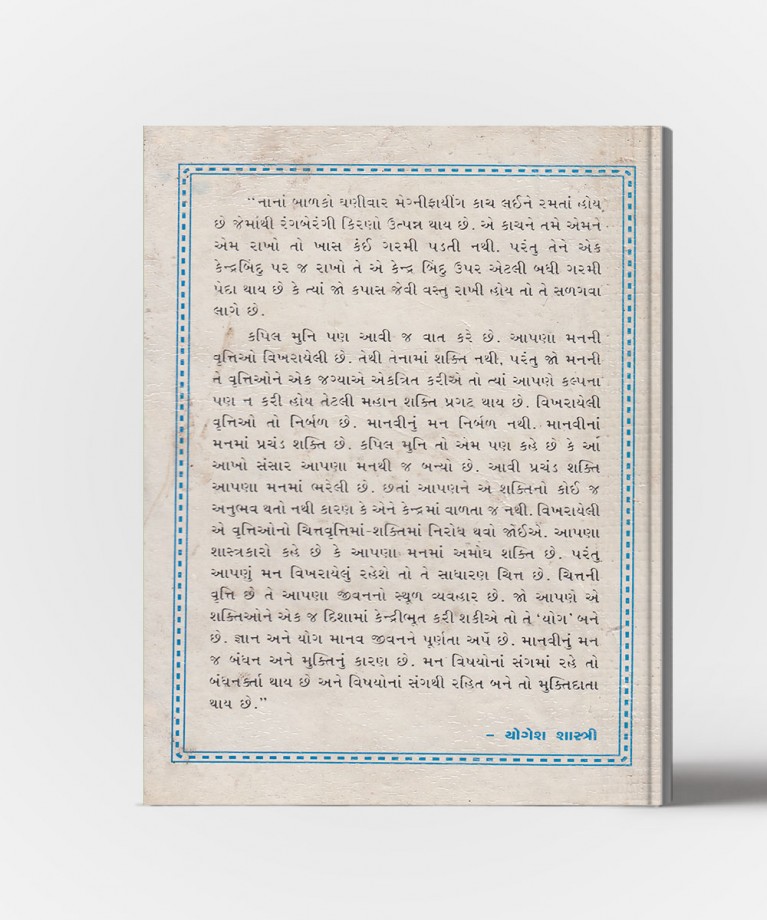 “નાનાં બાળકો ઘણીવાર મેગ્નીફાયીંગ કાચ લઈને રમતાં હોય
છે જેમાંથી રંગબેરંગી કિરણો ઉત્પન્ન થાય છે. એ કાચને તમે એમને
એમ રાખો તો ખાસ કંઈ ગરમી પડતી નથી. પરંતુ તેને એક
કેન્દ્રબિંદુ પર જ રાખો તે એ કેન્દ્ર બિંદુ ઉપર એટલી બધી ગરમી
પેદા થાય છે કે ત્યાં જો કપાસ જેવી વસ્તુ રાખી હોય તો તે સળગવા
લાગે છે.
કપિલ મુનિ પણ આવી જ વાત કરે છે. આપણા મનની
વૃત્તિઓ વિખરાયેલી છે. તેથી તેનામાં શક્તિ નથી, પરંતુ જો મનની
તે વૃત્તિઓને એક જગ્યાએ એકત્રિત કરીએ તો ત્યાં આપણે કલ્પના
પણ ન કરી હોય તેટલી મહાન શક્તિ પ્રગટ થાય છે. વિખરાયેલી
વૃત્તિઓ તો નિર્બળ છે. માનવીનું મન નિર્બળ નથી. માનવીનાં
મનમાં પ્રચંડ શક્તિ છે. કપિલ મુનિ તો એમ પણ કહે છે કે આ
આખો સંસાર આપણા મનથી જ બન્યો છે. આવી પ્રચંડ શક્તિ
આપણા મનમાં ભરેલી છે. છતાં આપણને એ શક્તિનો કોઈ જ
અનુભવ થતો નથી કારણ કે એને કેન્દ્રમાં વાળતા જ નથી. વિખરાયેલી
એ વૃત્તિઓનો ચિત્તવૃત્તિમાં-શક્તિમાં નિરોધ થવો જોઈએ. આપણા
શાસ્ત્રકારો કહે છે કે આપણા મનમાં અમોઘ શક્તિ છે. પરંતુ
આપણું મન વિખરાયેલું રહેશે તો તે સાધારણ ચિત્ત છે. ચિત્તની
વૃત્તિ છે તે આપણા જીવનનો સ્થૂળ વ્યવહાર છે. જો આપણે એ
શક્તિઓને એક જ દિશામાં કેન્દ્રીભૂત કરી શકીએ તો તે ‘યોગ’ બને
છે. જ્ઞાન અને યોગ માનવ જીવનને પૂર્ણતા અર્પે છે. માનવીનું મન
જ બંધન અને મુક્તિનું કારણ છે. મન વિષયોનાં સંગમાં રહે તો
બંધનકર્તા થાય છે અને વિષયોનાં સંગથી રહિત બને તો મુક્તિદાતા
થાય છે.”
– યોગેશ શાસ્ત્રી